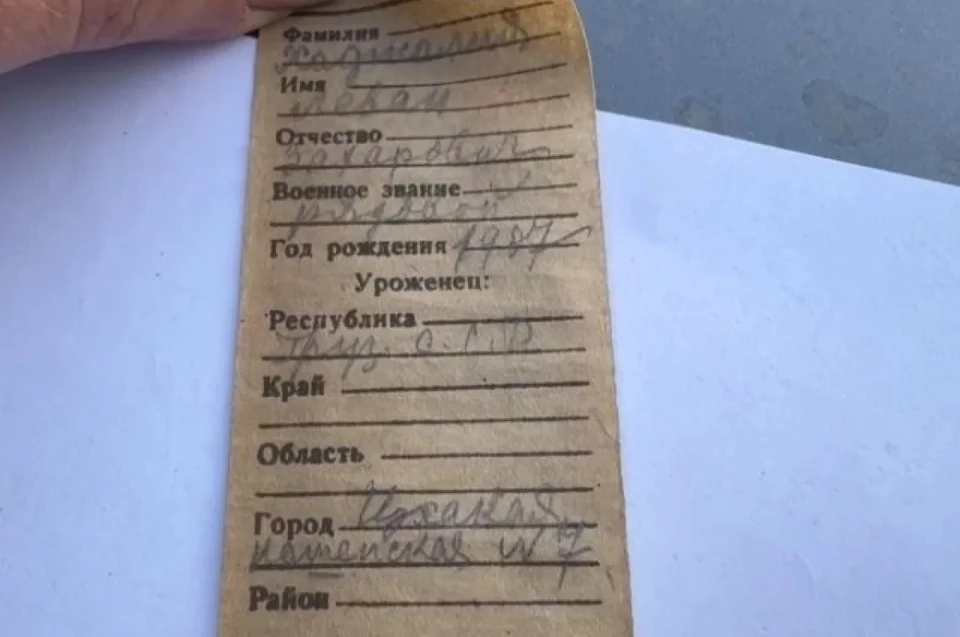 Фамилия
Хаджалия
Имя
Отчество
Захарович
Военное звание
рядовой
Год рождения
Уроженец:
Республика
Груз. С.С.Р.
Край
Область
Город Цхакая
N 7
Район